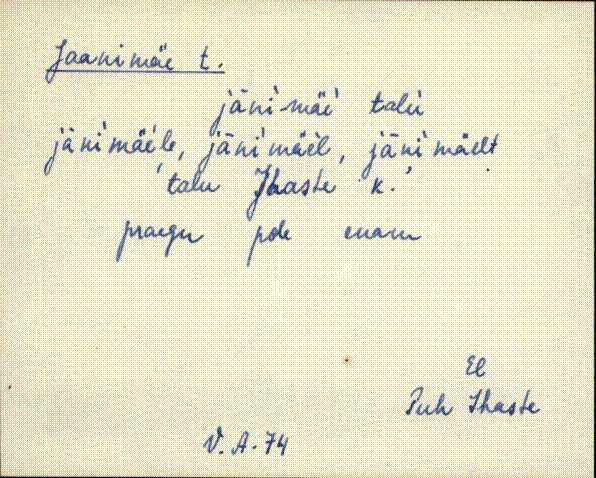 Jaanimäe t.
jäni-mäe talu
jänimäele, jänimäel, jänimäelt
'talu Ihaste k.'
praegu pole enam
El
Puh Ihaste
V. A. 74